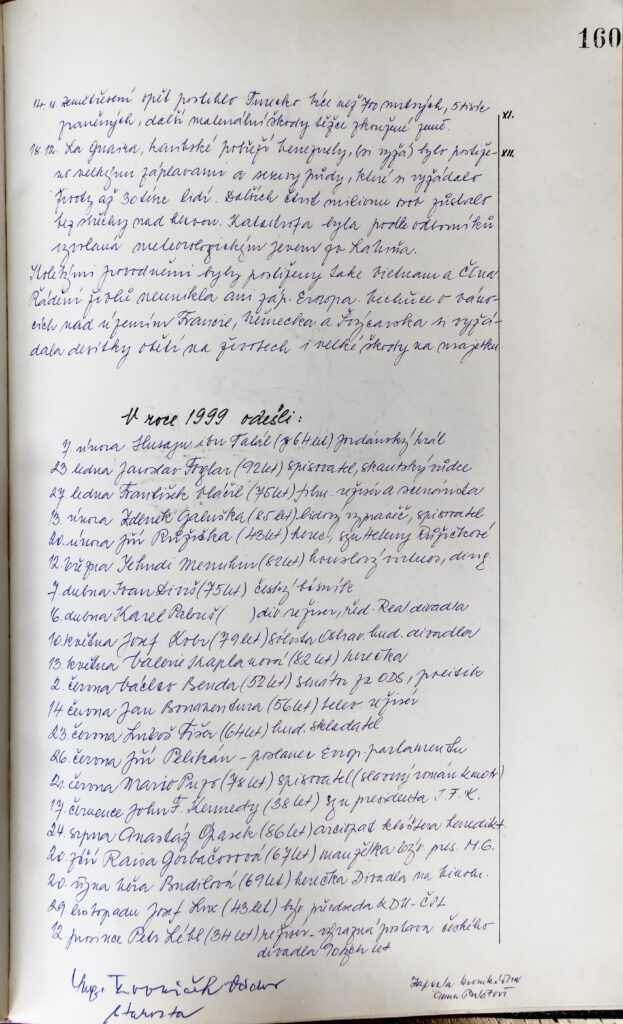 160
14. 11. Zemětřesení opět postihlo Turecko více než 700 mrtvých, 5 tisíc XI.
raněných, další materiální škody těžce zkoušené země.
18. 12. La Guaira, karibské pobřeží Venezuely, (si vyžá) bylo postiže- XII.
no velkými záplavami a sesuvy půdy, které si vyžádalo
životy až 30 tisíc lidí. Dalších čtvrt milionu osob zůstalo
bez střechy nad hlavou. Katastrofa byla podle odborníků
vyvolaná meteorologickým jevem zv. La Niňa.
Stoletými povodněmi byly postiženy také Vietnam a Čína
Řádění živlů neunikla ani záp. Evropa. Vichřice o váno-
cích nad územím Francie, Německa a Švýcarska si vyžá-
dala desítky obětí na životech i velké škody na majetku
V roce 1999 odešli:
7. února Husajn ibn Talál (64 let) jordánský král
23 ledna Jaroslav Foglar (92 let) spisovatel, skautský vůdce
27 ledna František Vláčil (75 let) film. režisér a scenárista
13. února Zdeněk Galuška (85 let) lidový vypravěč, spisovatel
20. února Jiří Růžička (43 let) herec, syn Heleny Růžičkové
12 března Jehudi Menuhin (82 let) houslový virtuos, dirig.
7. dubna Ivan Diviš (75 let) český básník
16. dubna Karel Palouš ( ) div. režisér, řed. Real. divadla
10. května Josef Kobr (79 let) sólista Ostrav. hud. divadla
13. května Valerie Kaplanová (82 let) herečka
2. června Václav Benda (52 let) senátor za ODS, politik
14 června Jan Bonaventura (56 let) telev. režisér
23. června Luboš Fišer (64 let) hud. skladatel
26. června Jiří Pelikán - poslanec Evrop. parlamentu
2. června Mario Puzo (78 let) spisovatel (slavný román kmotr)
17 července John F. Kennedy (38 let) syn presidenta J. F. K.
24. srpna Anastáz Opasek (86 let) arciopat kláštera benedikt.
20. září Raisa Gorbačovová (67 let) manželka býv. pres. M. G.
20. října Věra Budilová (69 let) herečka Divadla na Vinohr.
29 listopadu Josef Lux (43 let) býv. předseda KDU-ČSL
12 prosince Petr Lébl (34 let) režisér - výrazná postava českého
divadla 90tých let
Ing.
starosta
Zapsala kronikářka
Anna